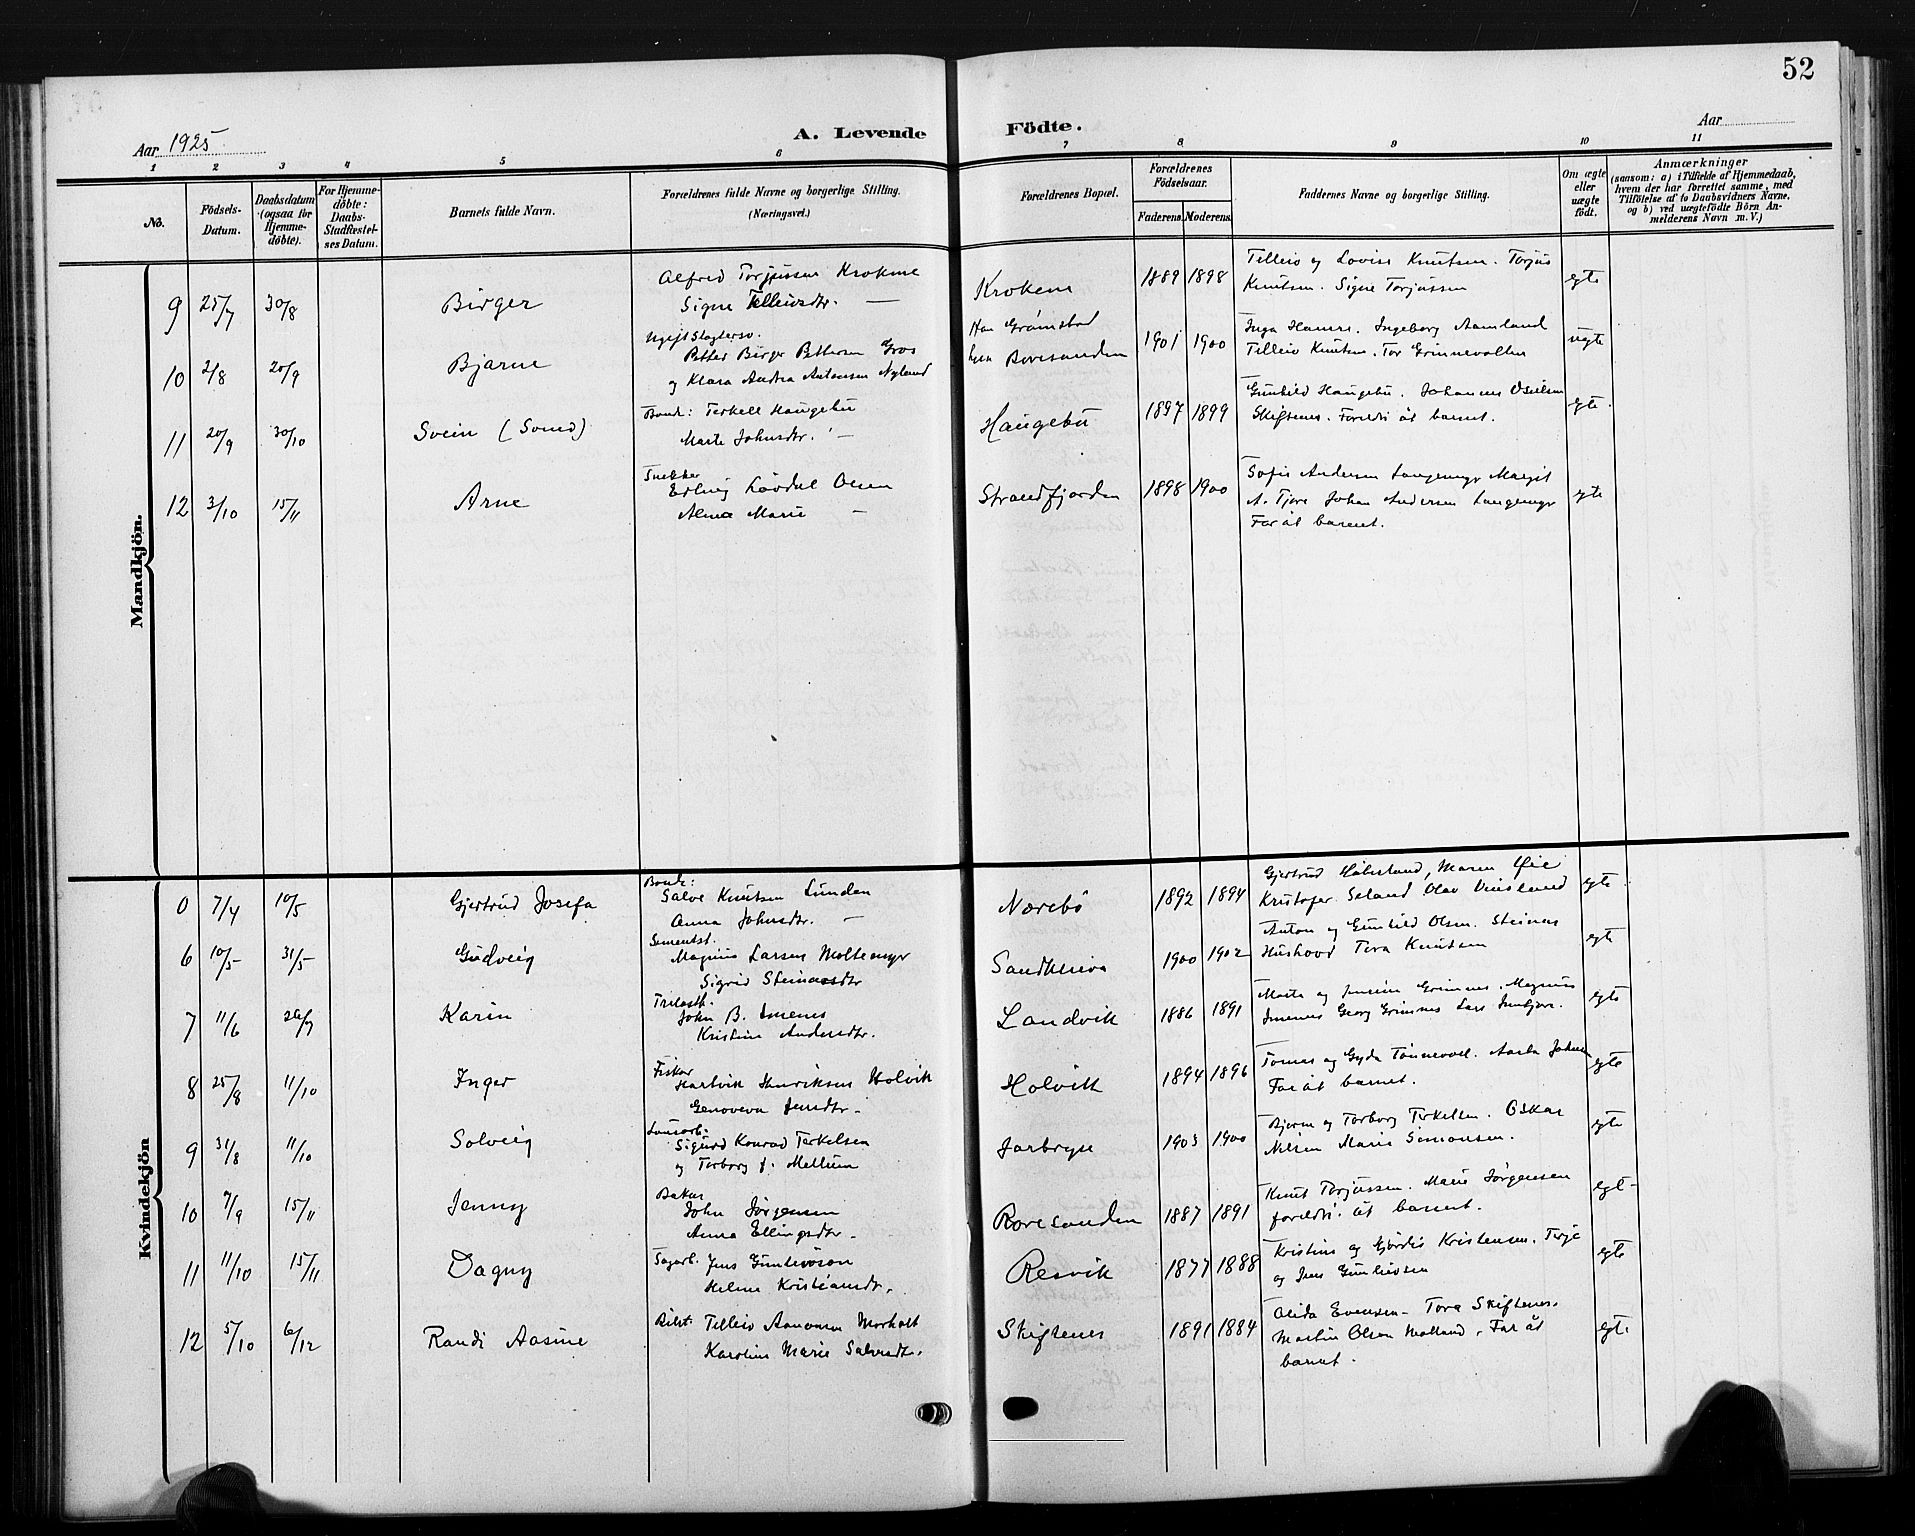 52
Aar 1925
A. Levende Födte.
Aar
1 2 3 4 5 6 7 8 9 10 11
No.
Födsels-Datum.
Daabsdatum (ogsaa for Hjemmedöbte).
For Hjemmedöbte: Daabs-Stadfæstelses Datum.
Barnets fulde Navn.
Forældrenes fulde Navne og borgerlige Stilling. (Næringsvei.)
Forældrenes Bopæl.
Forældrenes Födselsaar.
Faderens. Moderens.
Faddernes Navne og borgerlige Stilling.
Om ægte eller uægte födt.
Anmærkninger
(saasom: a) i Tilfælde af Hjemmedaab, hvem der har forrettet samme, med Tilföielse af to Daabsvidners Navne, og b) ved uægtefödte Börn Anmelderens Navn m. V.)
Mandkjön.
9 25/7 30/8 Birger Alfred Torjussen Krokene Krokene 1889 1898 Telleiv og Lovise Knutsen. Torjus egte
Signe Telleivsdtr. — Knutsen. Signe Torjussen
10 2/8 20/9 Bjarne Ugift Slagtersv. Han Grimstad 1901 1900 Inga Hamre. Ingeborg Aamland uegte
Petter Birger Pettersen Gros hun Roresanden Telleiv Knutsen. Tor Grinnevollen
og Klara Andrea Antonsen Nyland
11 20/9 30/10 Svein (Svend) Bonde: Terkell Haugebu Haugebu 1897 1899 Gunhild Haugebu. Johannes Osulsen egte.
Marte Johnsdtr. — Skiftenes. Foreldr. åt barnet.
12 3/10 15/11 Arne Snekker Strandfjorden 1898 1900 Sofie Andersen Langemyr Margit egte
Erling Løvdal Olsen A. Tjore Johan Andersen Langemyr
Alma Marie — Far åt barnet.
Kvindekjön
0 7/4 10/5 Gjertrud Josefa Bonde: Nærebö 1892 1894 Gjertrud Håbesland, Maren Øie egte
Salve Knutsen Lunden Kristofer Seland Olav Vinsland
Anna Johnsdtr. —
6 10/5 31/5 Gudveig Sementst. Sandkleiva 1900 1902 Anton og Gunhild Olsen. Steinar egte
Magnus Larsen Moltemyr Hushovd Tora Knutsen
Sigrid Steinarsdtr
7 11/6 26/7 Karin John B. Imenes Landvik 1886 1891 Marta og Grimnes. Magnus egte
Kristine Andersdtr. Imenes Georg Grimnes Lars
8 25/8 11/10 Inger Fisker Holvik 1894 1896 Tomas og Gyda Tønnevol. Aasta Johnsen egte
Hartvik Henriksen Holvik Far åt barnet.
Genoveva Jensdtr.
9 31/8 11/10 Solveig Sigurd Konrad Terkelsen Jorbryge 1903 1900 Bjarne og Torborg Terkelsen. Oskar egte
og Torborg f. Mellum Nilsen Marie Simonsen.
10 7/9 15/11 Jenny Baker Roresanden 1887 1891 Knut Torjussen. Marie Jørgensen egte
John Jørgensen foreldr. åt barnet.
Anna Ellingsdtr.
11 11/10 15/11 Dagny Sagarb. Jens Gunleivsson Resvik 1877 1888 Kristine og Gjördis Kristensen. Terje egte
Helene Kristiansdtr. og Jens Gunleivsen
12 5/10 6/12 Randi Aasine Telleiv Aanonsen Morholt Skiftenes 1891 1884 Alida Evensen - Tora Skiftenes. egte
Karoline Marie Salvesdtr. Martin Olsen Molland. Far åt
barnet.